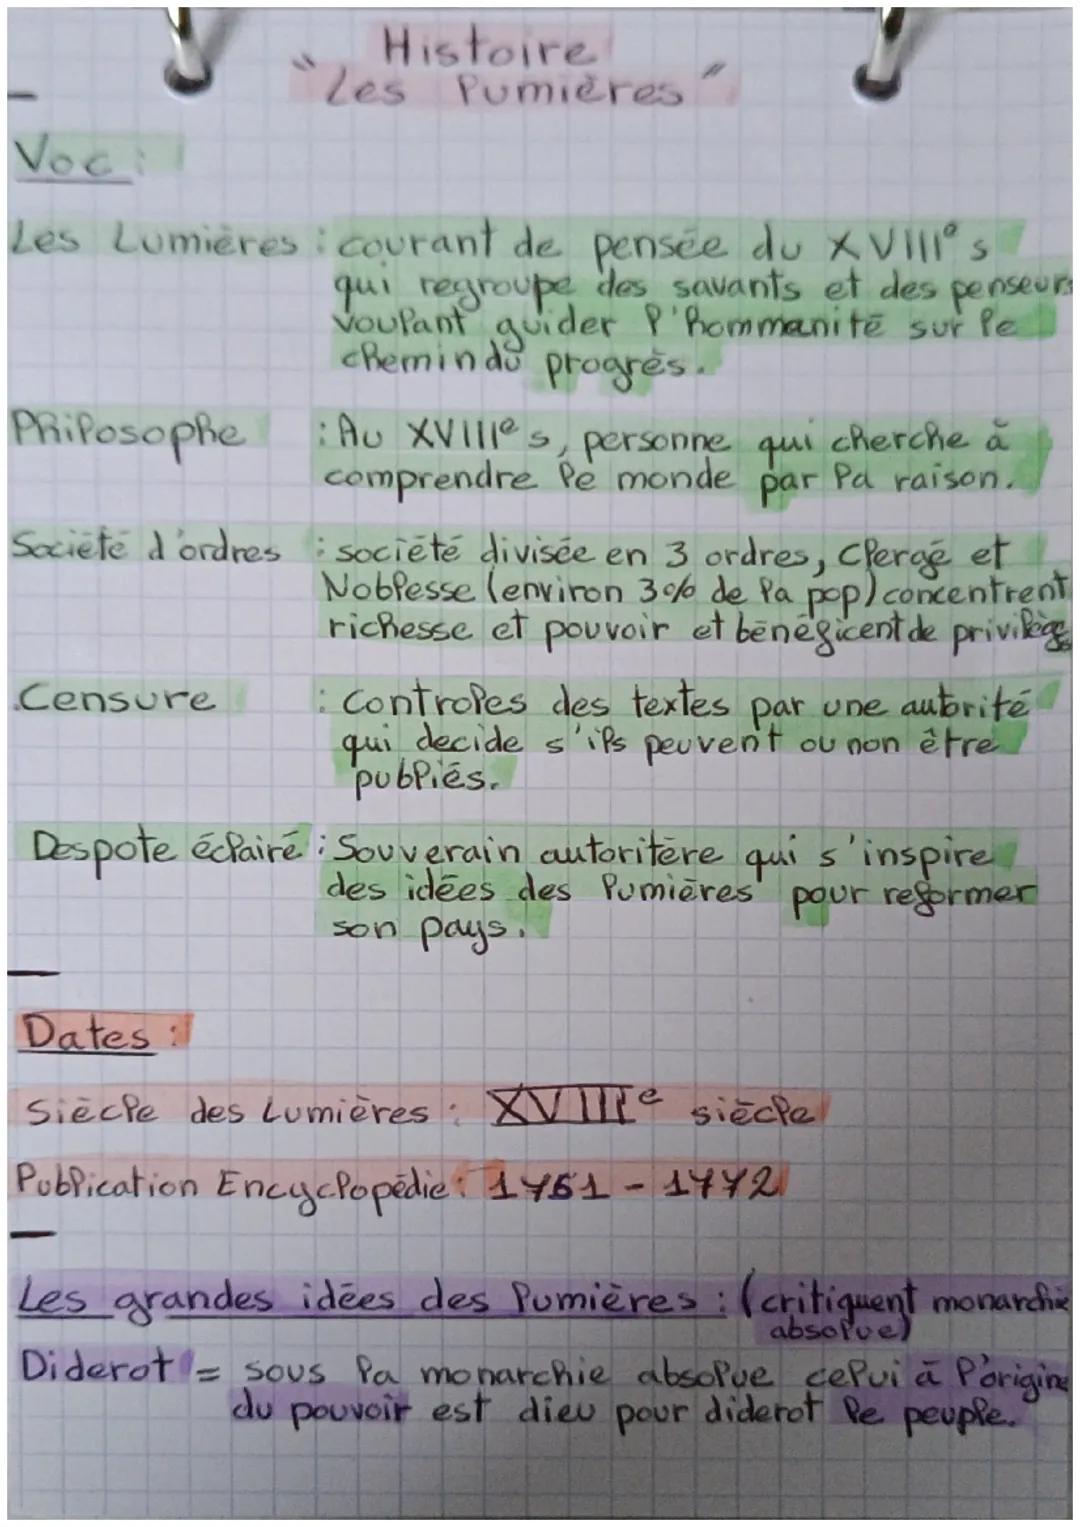 Histoire
"Les lumières"
Voc :
Les Lumières : courant de pensée du XVIIIe s
qui regroupe des savants et des penseurs
voulant guider l'hommanité sur le
chemin du progrès.
Philosophe : Au XVIIIe s, personne qui cherche à
comprendre le monde par la raison.
Société d'ordres : société divisée en 3 ordres, clergé et
Noblesse (environ 3% de la pop) concentrent
richesse et pouvoir et bénéficent de privilèges
Censure : controles des textes par une autorité
qui decide s'ils peuvent ou non être
publiés.
Despote éclairé : Souverain autoritère qui s'inspire
des idées des lumières pour reformer
son pays.
Dates :
Siècle des Lumières : XVIIIe siècle
Publication Encyclopédie : 1751 - 1772
Les grandes idées des lumières : (critiquent monarchie
absolue)
Diderot = sous la monarchie absolue celui à l'origine
du pouvoir est dieu pour diderot le peuple.